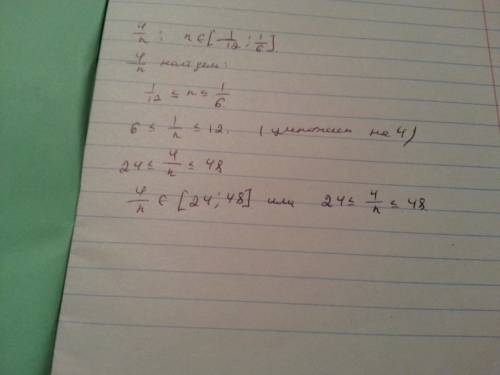 4/n ; n ∈ [1/12 ; 1/6].
4/n найдем:
1/12 ≤ n ≤ 1/6
6 ≤ 1/n ≤ 12. (умножим на 4)
24 ≤ 4/n ≤ 48
4/n ∈ [24 ; 48] или 24 ≤ 4/n ≤ 48